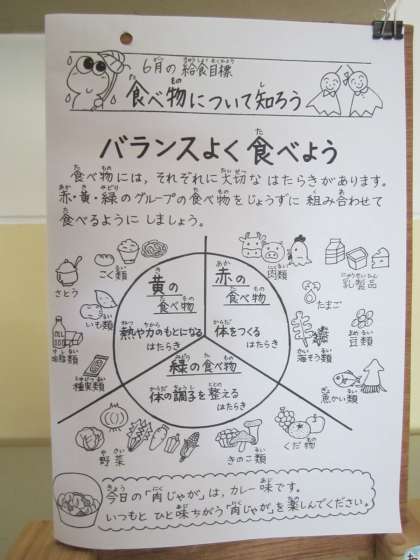 6月の 給食目標
食べ物について知ろう
バランスよく食べよう
食べ物には、それぞれに大切な はたらきがあります。
赤・黄・緑のグループの食べ物をじょうずに 組み合わせて
食べるように しましょう。
こく類
さとう
いも類
油脂類
種実類
黄の
食べ物
熱や力のもとになる
はたらき
赤の
食べ物
体をつくる
はたらき
肉類
乳製品
たまご
豆類
海そう類
魚かい類
緑の食べ物
体の調子を整える
はたらき
野菜
きのこ類
くだ物
今日の「肉じゃが」は、カレー味です。
いつもと ひと味ちがう「肉じゃが」を楽しんでください。